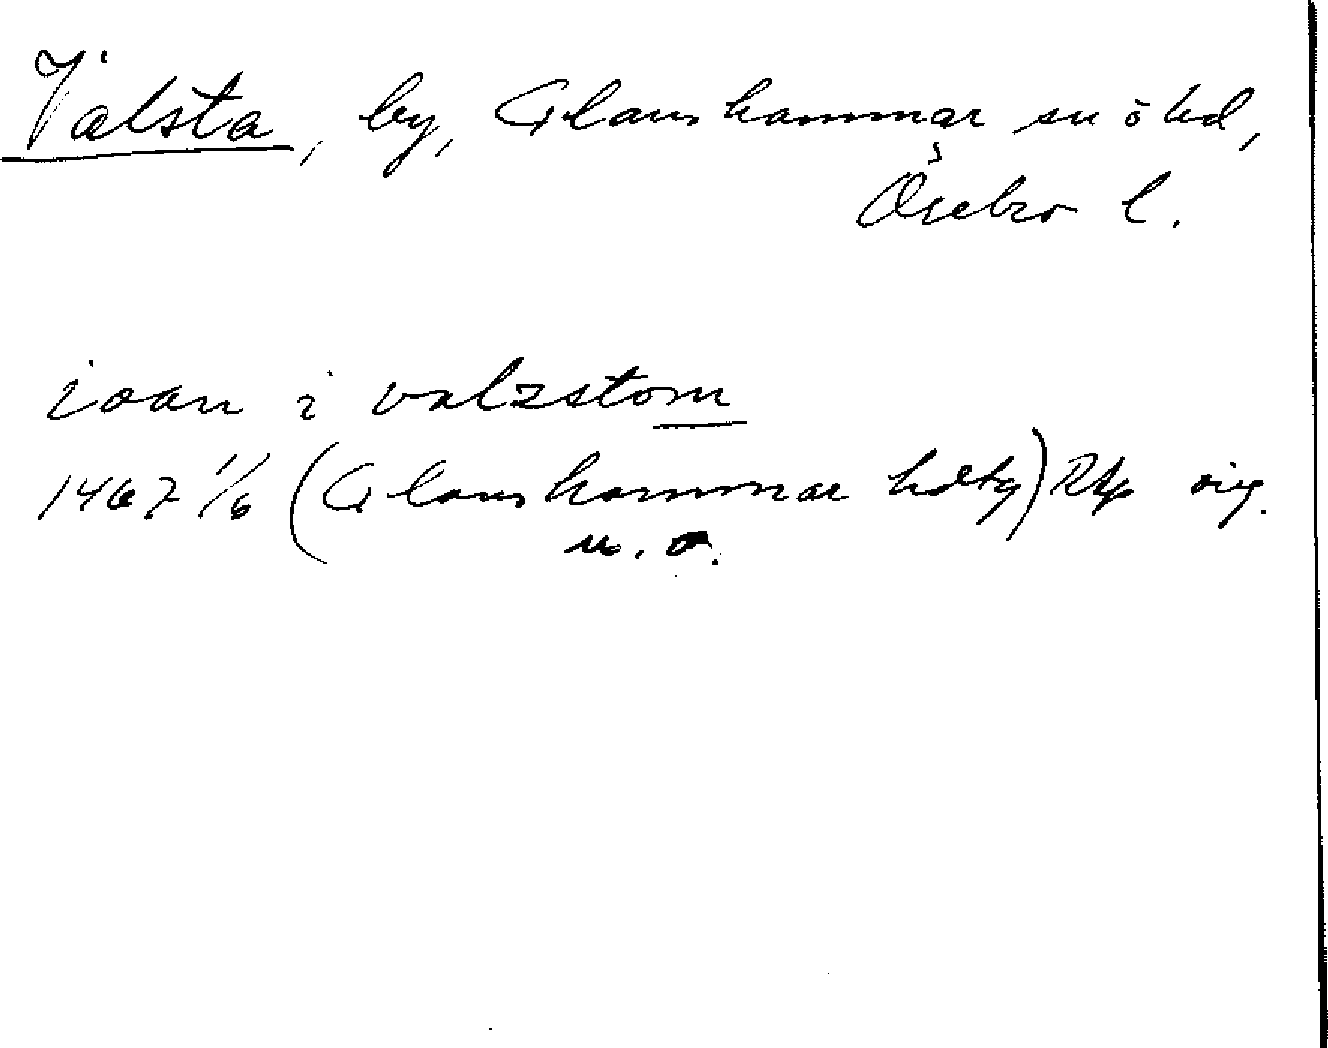 Välsta, by, Glanshammar sn o hd,
Örebro l.
ioan i valzstom
1467 1/6 (Glanshammar hdtg) RAp orig.
u. o.